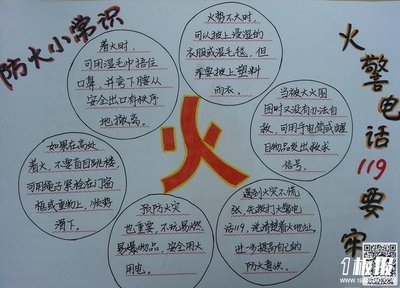 防火小常识
着火时
可用湿毛巾捂住
口鼻，并弯下腰从
安全出口有秩序
地撤离。
火势不大时，
可以披上浸湿的
衣服或湿毛毯，但
不要披上塑料
雨衣。
当被火围
困时又没有办法自
救，可用手电筒或醒
目物品发出救求
信号。
如果在高处
着火，不要盲目跳楼，
可用绳子紧栓在门窗
框或重物上，顺势
滑下。
预防火灾
也重要，不玩易燃
易爆物品，安全用火
用电。
遇到火灾不慌
张，先拨打火警电
话119，说清楚着火地址，
进一步提高自己的
防火意识。
火
火警电话119要牢